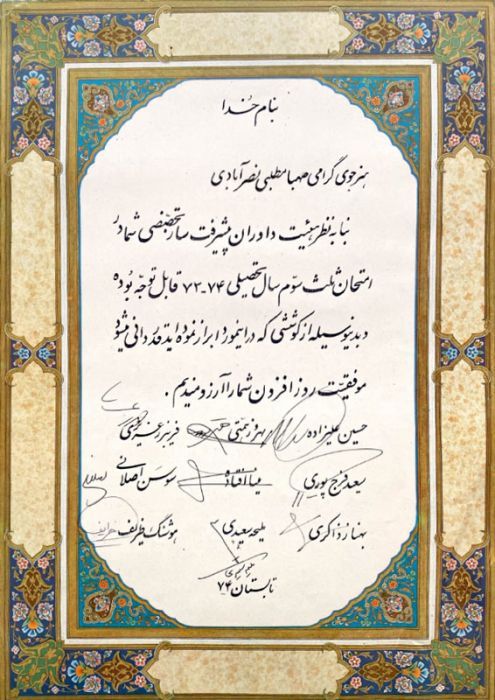 بنام خدا
هنرجوی گرامی صهبا مطلبی نصرآبادی
بنا به نظر هیئت داوران پیشرفت ساز تخصصی شما در
امتحان ثلث سوم سال تحصیلی ۷۴-۷۳ قابل توجه بوده
و بدینوسیله از کوششی که در اینمورد ابراز نموده اید قدردانی میشود
موفقیت روز افزون شما را آرزومندیم .
حسین علیزاده بهروز همتی فریبرز عزیزی
سعید فرج پوری مینا افتاده سوسن اصلانی
بهناز ذاکری ملیحه سعیدی هوشنگ ظریف
تابستان ۷۴